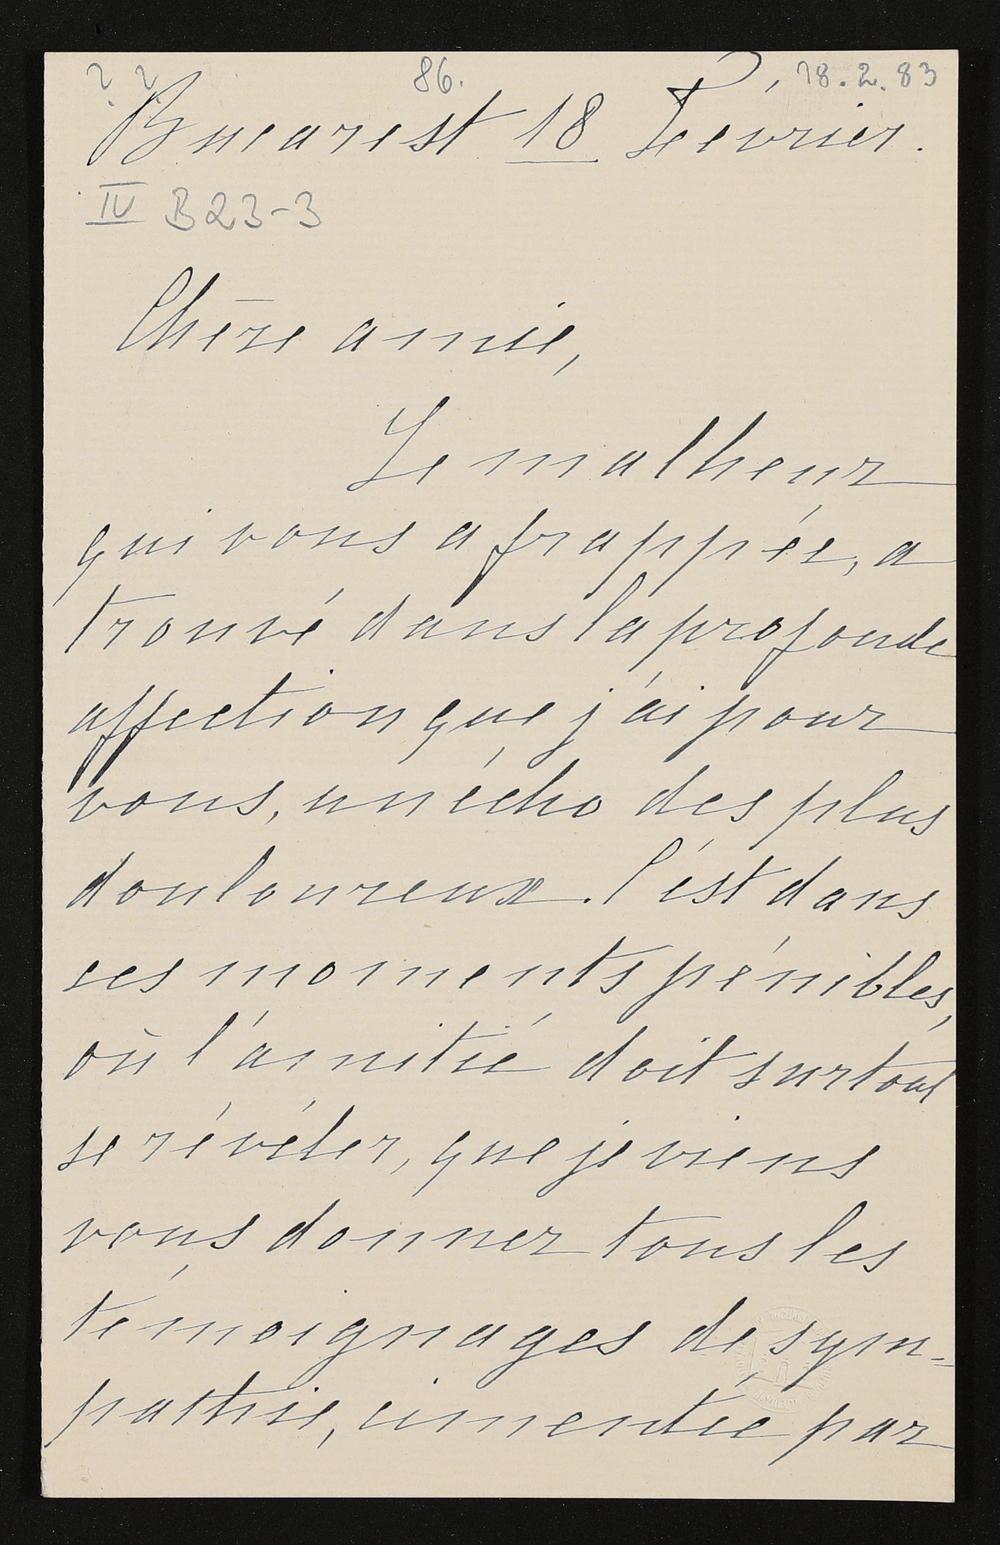 ? ? 86. 18.2.83
Bucarest 18 Février.
IV B23-3
Chère amie,
Le malheur
qui vous a frappée, a
trouvé dans la profonde
affection que j'ai pour
vous, un écho des plus
douloureux. C'est dans
ces moments pénibles,
où l'amitié doit surtout
se révéler, que je viens
vous donner tous les
témoignages de sym-
pathie, cimentée par